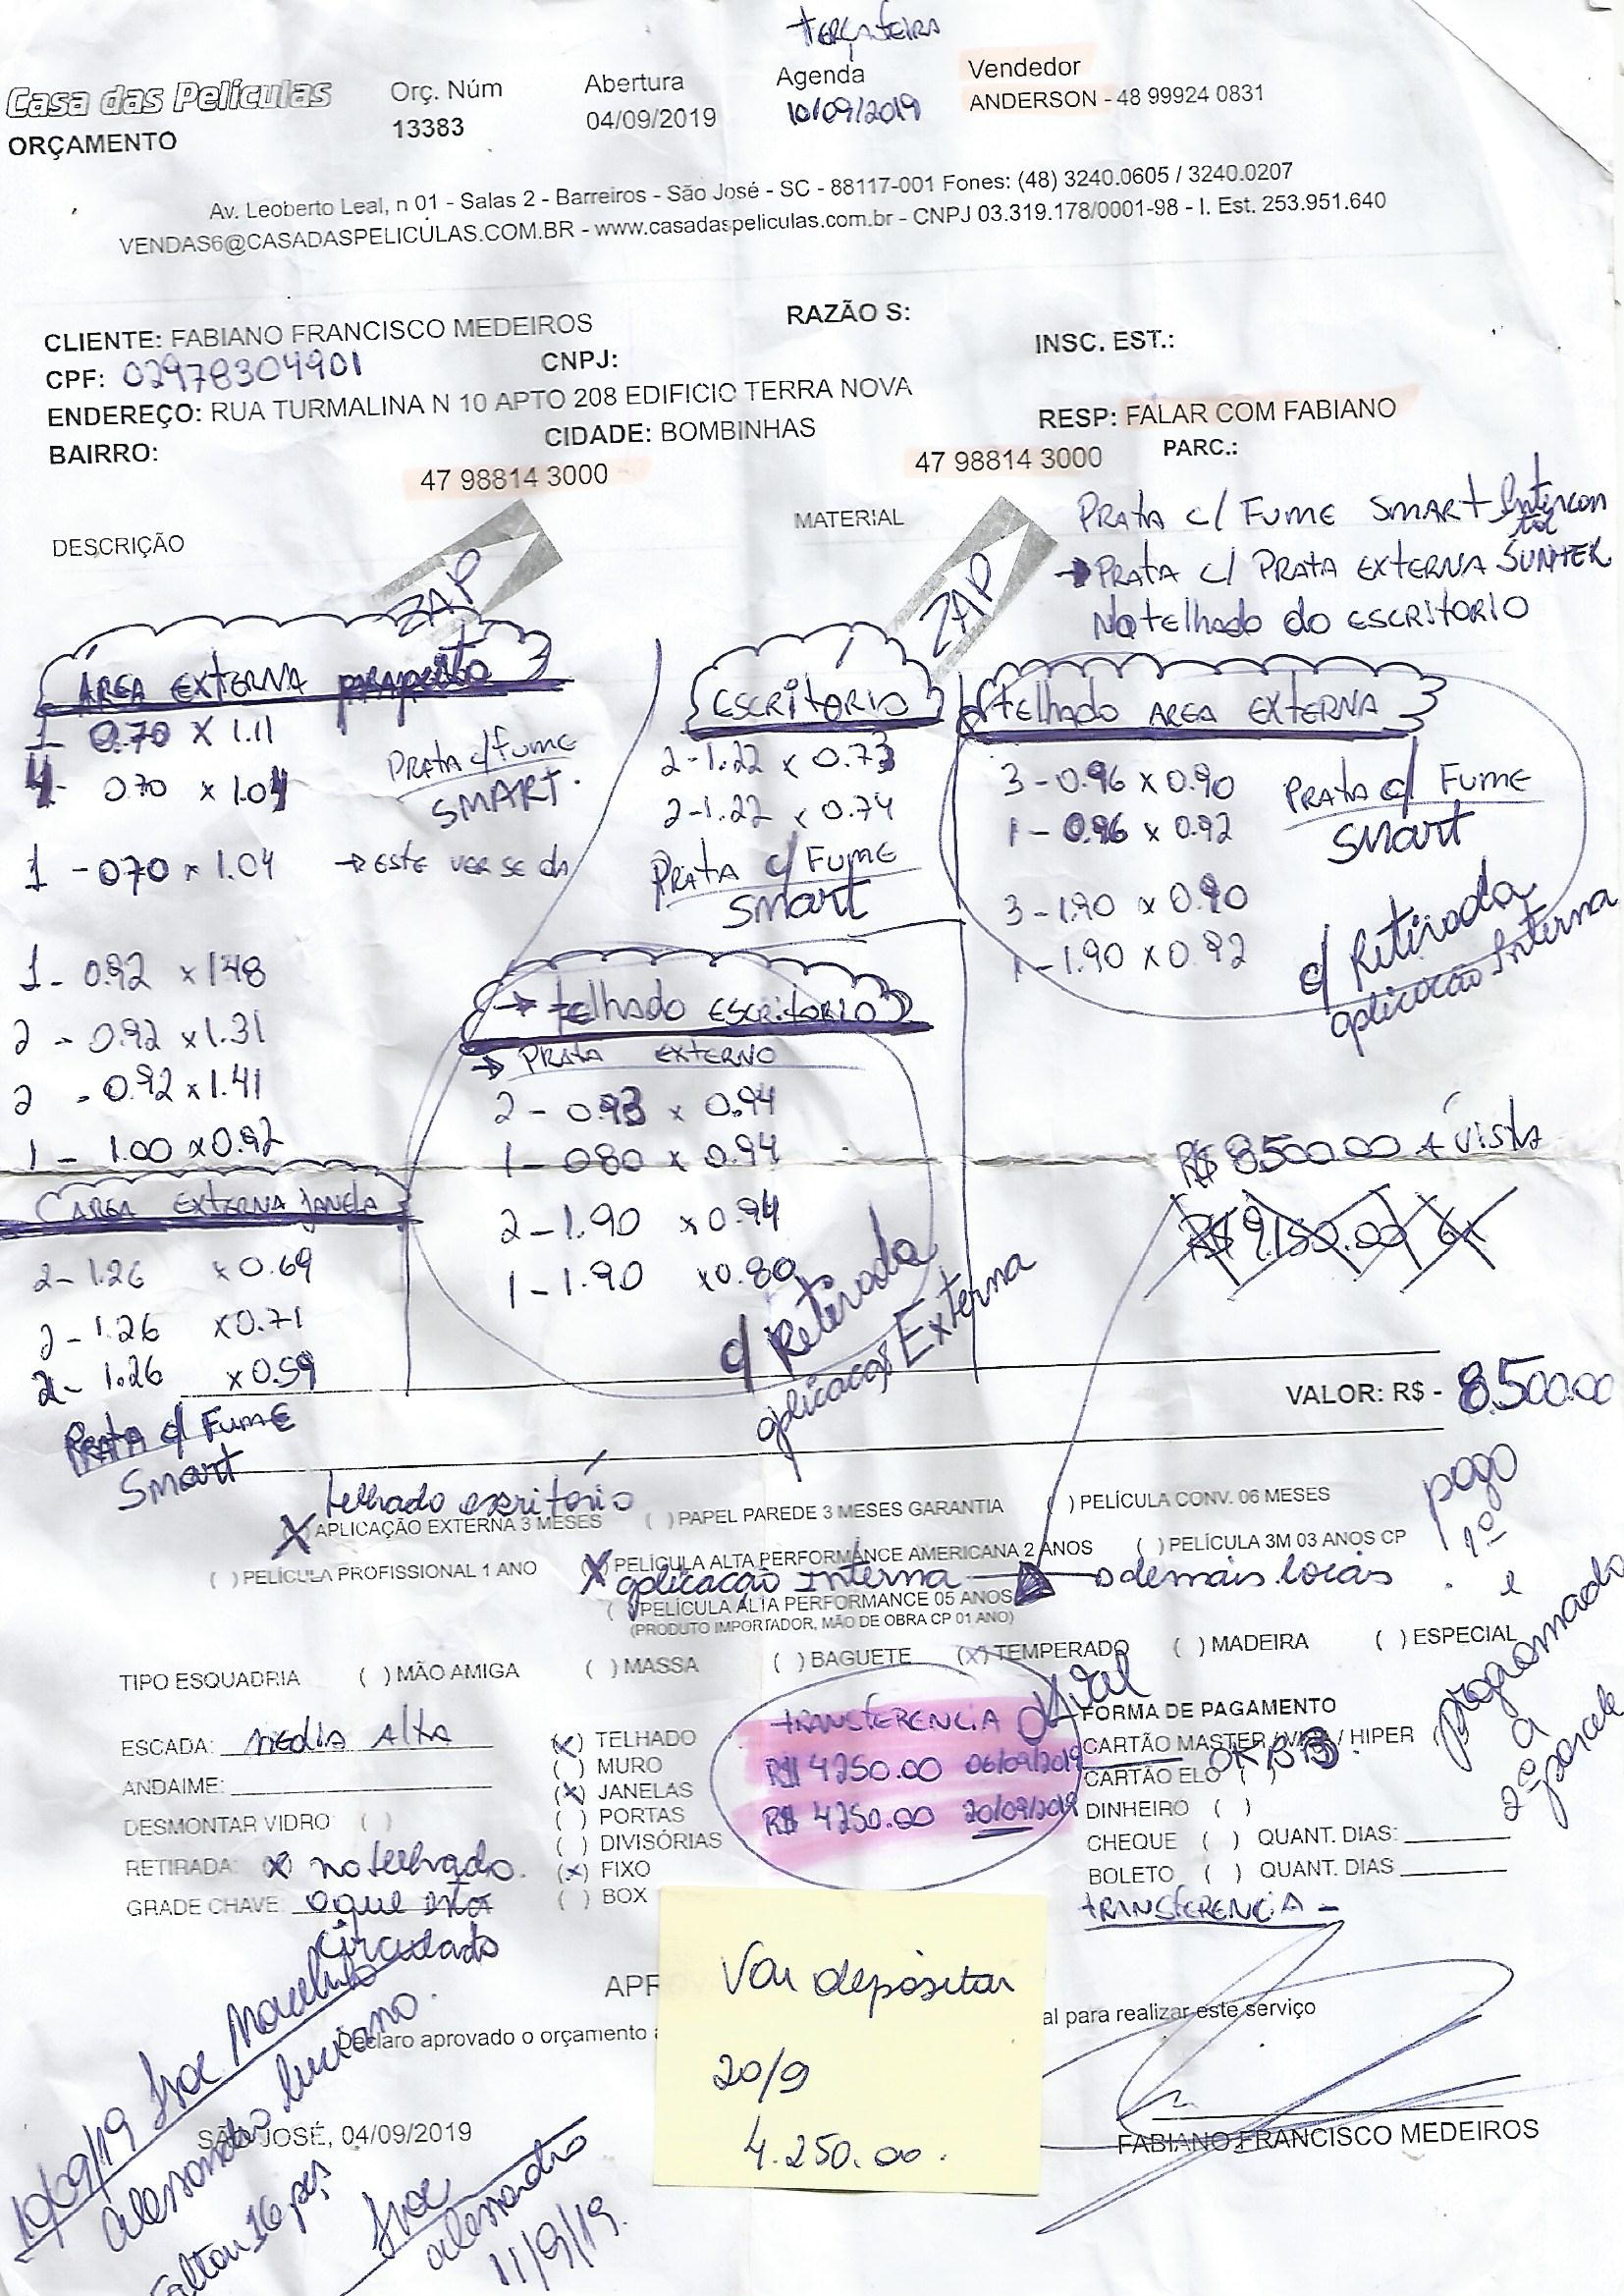 TERÇAFEIRA
Casa das Películas
ORÇAMENTO
Orç. Núm
13383
Abertura
04/09/2019
Agenda
10/09/2019
Vendedor
ANDERSON - 48 99924 0831
Av. Leoberto Leal, n 01 - Salas 2 - Barreiros - São José - SC - 88117-001 Fones: (48) 3240.0605 / 3240.0207
VENDAS6@CASADASPELICULAS.COM.BR - www.casadaspeliculas.com.br - CNPJ 03.319.178/0001-98 - I. Est. 253.951.640
CLIENTE: FABIANO FRANCISCO MEDEIROS
RAZÃO S:
CPF: 02978304901
CNPJ:
INSC. EST.:
ENDEREÇO: RUA TURMALINA N 10 APTO 208 EDIFICIO TERRA NOVA
BAIRRO:
CIDADE: BOMBINHAS
RESP: FALAR COM FABIANO
47 98814 3000
47 98814 3000
PARC.:
DESCRIÇÃO
MATERIAL
ZAP
ZAP
PRATA C/ FUME SMART
→ PRATA C/ PRATA EXTERNA SUNTEK
No telhado do ESCRITORIO
ÁREA EXTERNA
1- 0.70 X 1.11
4- 0.70 x 1.04
PRATA c/ fume
SMART.
1 - 070 x 1.04 → ESTE VER SE dá
1- 0.92 x 1.48
2 - 0.92 x 1.31
2 - 0.92 x 1.41
1 - 1.00 x 0.92
ÁREA EXTERNA JANELA
2- 1.26 x 0.69
2- 1.26 x 0.71
2- 1.26 x 0.59
PRATA c/ Fume
Smart
ESCRITORIO
2-1.22 x 0.73
2-1.22 x 0.74
PRATA c/ FUME
smart
→ telhado ESCRITORIO
→ PRATA EXTERNO
2 - 0.93 x 0.94
1 - 080 x 0.94
2 - 1.90 x 0.94
1 - 1.90 x 0.80
c/ Retirada
aplicação Externa
telhado AREA EXTERNA
3 - 0.96 x 0.90
1 - 0.96 x 0.92
PRATA c/ FUME
smart
3 - 1.90 x 0.90
1 - 1.90 x 0.92
c/ Retirada
aplicação Interna
R$ 8.500.00 A vista
R$ 9.150.00 6x
VALOR: R$ - 8.500.00
pago
1º
e
programado
a
2ª parcela
telhado escritório
X APLICAÇÃO EXTERNA 3 MESES
( ) PAPEL PAREDE 3 MESES GARANTIA
( ) PELÍCULA CONV. 06 MESES
( ) PELÍCULA PROFISSIONAL 1 ANO
(X) PELÍCULA ALTA PERFORMANCE AMERICANA 2 ANOS
( ) PELÍCULA 3M 03 ANOS CP
aplicação Interna → demais locais
( ) PELÍCULA ALTA PERFORMANCE 05 ANOS
(PRODUTO IMPORTADOR, MÃO DE OBRA CP 01 ANO)
TIPO ESQUADRIA ( ) MÃO AMIGA ( ) MASSA ( ) BAGUETE (X) TEMPERADO ( ) MADEIRA ( ) ESPECIAL
ESCADA: media Alta
ANDAIME:
DESMONTAR VIDRO ( )
RETIRADA: (X) no telhado.
GRADE CHAVE: o que está
circulado
(X) TELHADO
( ) MURO
(X) JANELAS
( ) PORTAS
( ) DIVISÓRIAS
(X) FIXO
( ) BOX
TRANSFERENCIA
R$ 4250.00 06/09/2019
R$ 4250.00 20/09/2019
FORMA DE PAGAMENTO
CARTÃO MASTER / VISA / HIPER
OK BB.
CARTÃO ELO ( )
DINHEIRO ( )
CHEQUE ( ) QUANT. DIAS:
BOLETO ( ) QUANT. DIAS
TRANSFERENCIA -
Vai depositar
20/9
4.250.00.
APR
Declaro aprovado o orçamento a
al para realizar este serviço
SÃO JOSÉ, 04/09/2019
FABIANO FRANCISCO MEDEIROS
10/09/19
alessandro luciano.
16 pçs
alessandro
11/9/19.